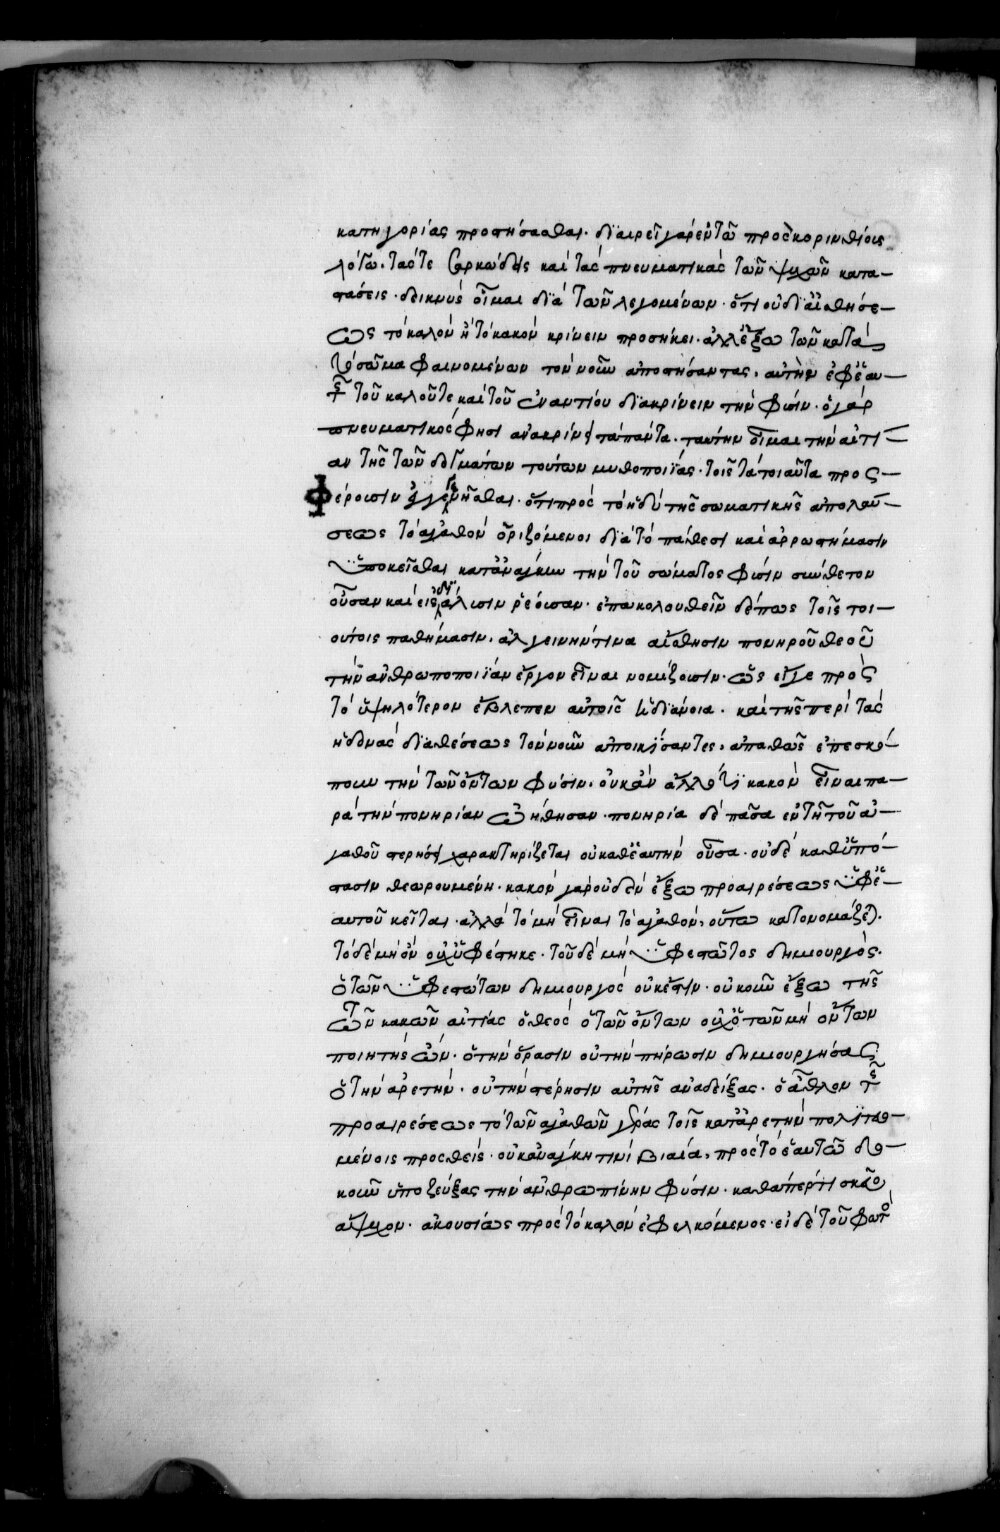 κατηγορίας προστήσασθαι. διαιρεῖ γὰρ ἐν τῶ πρὸς κορινθίους
λόγω. τάς τε σαρκώδεις καὶ τὰς πνευματικὰς τῶν ψυχῶν κατα-
στάσεις. δεικνὺς οἶμαι διὰ τῶν λεγομένων. ὅτι οὐ δι' αἰσθήσε-
ως τὸ καλὸν ἢ τὸ κακὸν κρίνειν προσήκει. ἀλλ' ἔξω τῶν κατὰ
τὸ σῶμα φαινομένων τὸν νοῦν ἀποστήσαντας, αὐτὴν ἐφ' ἑαυ-
τῆς τοῦ καλοῦ τε καὶ τοῦ ἐναντίου διακρίνειν τὴν φύσιν. ὁ γὰρ
πνευματικὸς φησὶ ἀνακρίνει τὰ πάντα. ταύτην οἶμαι τὴν αἰτί-
αν τῆς τῶν δογμάτων τούτων μυθοποιΐας. τοῖς τὰ τοιαῦτα προς-
φέρουσιν ἐγγεγενῆσθαι. ὅτι πρὸς τὸ ἡδὺ τῆς σωματικῆς ἀπολαύ-
σεως τὸ ἀγαθὸν ὁριζόμενοι διὰ τὸ πάθεσι καὶ ἀρρωστήμασιν
ὑποκεῖσθαι κατ' ἀνάγκην τὴν τοῦ σώματος φύσιν σύνθετον
οὖσαν καὶ εἰς διάλυσιν ῥέουσαν. ἐπακολουθεῖν δέ πως τοῖς τοι-
ούτοις παθήμασιν, ἀλγεινήν τινα αἴσθησιν πονηροῦ θεοῦ
τὴν ἀνθρωποποιΐαν ἔργον εἶναι νομίζουσιν. ὡς εἴγε πρὸς
τὸ ὑψηλότερον ἔβλεπεν αὐτοῖς ἡ διάνοια. καὶ τῆς περὶ τὰς
ἡδονὰς διαθέσεως τὸν νοῦν ἀποικίσαντες, ἀπαθῶς ἐπεσκό-
πουν τὴν τῶν ὄντων φύσιν. οὐκ ἂν ἄλλό τι κακὸν εἶναι πα-
ρὰ τὴν πονηρίαν ὠήθησαν. πονηρία δὲ πᾶσα ἐν τῆ τοῦ ἀ-
γαθοῦ στερήσει χαρακτηρίζεται οὐ καθ' ἑαυτὴν οὖσα. οὐδὲ καθ' ὑπό-
στασιν θεωρουμένη. κακὸν γὰρ οὐδὲν ἔξω προαιρέσεως ἐφ' ἑ-
αυτοῦ κεῖται. ἀλλὰ τὸ μὴ εἶναι τὸ ἀγαθὸν, οὕτω κατονομάζεται.
τὸ δὲ μὴ ὂν οὐχ ὑφέστηκε. τοῦ δὲ μὴ ὑφεστῶτος δημιουργὸς.
ὁ τῶν ὑφεστώτων δημιουργὸς οὐκ ἔστιν. οὐκοῦν ἔξω τῆς
τῶν κακῶν αἰτίας ὁ θεὸς ὁ τῶν ὄντων οὐχ ὁ τῶν μὴ ὄντων
ποιητὴς ὢν. ὁ τὴν ὅρασιν οὐ τὴν πήρωσιν δημιουργήσας
ὁ τὴν ἀρετὴν. οὐ τὴν στέρησιν αὐτῆς ἀναδείξας. ὁ ἆθλον τῆς
προαιρέσεως τὸ τῶν ἀγαθῶν γέρας τοῖς κατ' ἀρετὴν πολιτευο-
μένοις προςθείς. οὐκ ἀνάγκη τινὶ βιαία, πρὸς τὸ ἑαυτῶ δο-
κοῦν ὑποζεύξας τὴν ἀνθρωπίνην φύσιν. καθάπέρ τι σκεῦος
ἄψυχον. ἀκουσίως πρὸς τὸ καλὸν ἐφελκόμενος. εἰ δὲ τοῦ φωτὸς